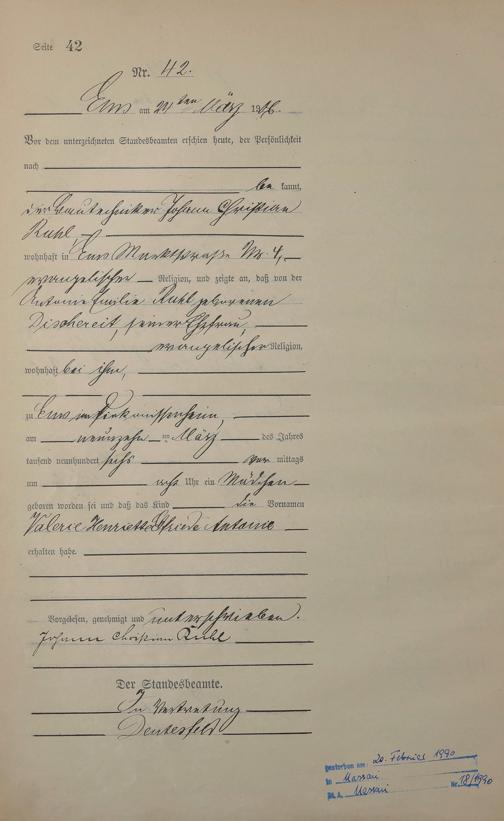 Seite 42
Nr. 42.
Ems am 21 ten März 1906.
Vor dem unterzeichneten Standesbeamten erschien heute, der Persönlichkeit
nach
be kannt,
der Bautechniker Johann Christian
Ruhl,
wohnhaft in Ems Marktstraße Nr. 4,
evangelischer Religion, und zeigte an, daß von der
Antonie Emilie Ruhl geborenen
Dischereit, seiner Ehefrau,
evangelischer Religion,
wohnhaft bei ihm,
zu Ems im Diakonissenheim,
am neunzehnten März des Jahres
tausend neunhundert sechs vor mittags
um acht Uhr ein Mädchen
geboren worden sei und daß das Kind die Vornamen
Valerie Henriette Antonie
erhalten habe.
Vorgelesen, genehmigt und unterschrieben.
Johann Christian Ruhl
Der Standesbeamte.
In Vertretung
gestorben am: 20. Februar 1990
in Nassau
St. A. Nassau Nr. 18/1990